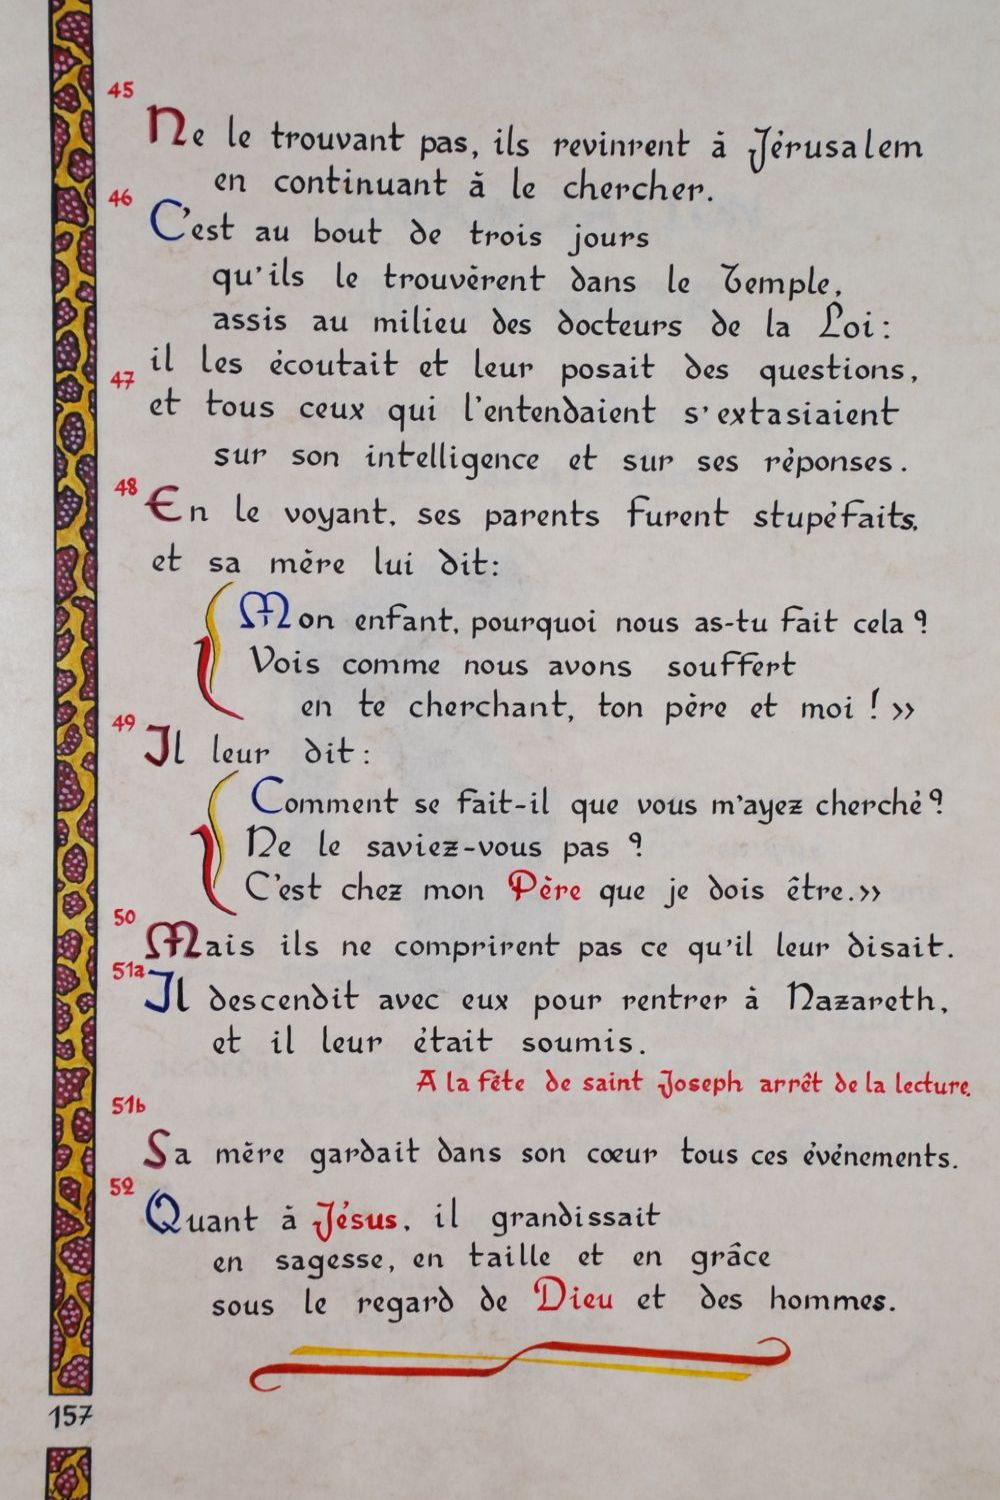 45
Ne le trouvant pas, ils revinrent à Jérusalem
en continuant à le chercher.
46
C'est au bout de trois jours
qu'ils le trouvèrent dans le Temple,
assis au milieu des docteurs de la Loi :
il les écoutait et leur posait des questions,
47
et tous ceux qui l'entendaient s'extasiaient
sur son intelligence et sur ses réponses.
48
En le voyant, ses parents furent stupéfaits,
et sa mère lui dit :
Mon enfant, pourquoi nous as-tu fait cela ?
Vois comme nous avons souffert
en te cherchant, ton père et moi ! »
49
Il leur dit :
Comment se fait-il que vous m'ayez cherché ?
Ne le saviez-vous pas ?
C'est chez mon Père que je dois être. »
50
Mais ils ne comprirent pas ce qu'il leur disait.
51a
Il descendit avec eux pour rentrer à Nazareth,
et il leur était soumis.
A la fête de saint Joseph arrêt de la lecture.
51b
Sa mère gardait dans son cœur tous ces événements.
52
Quant à Jésus, il grandissait
en sagesse, en taille et en grâce
sous le regard de Dieu et des hommes.
157